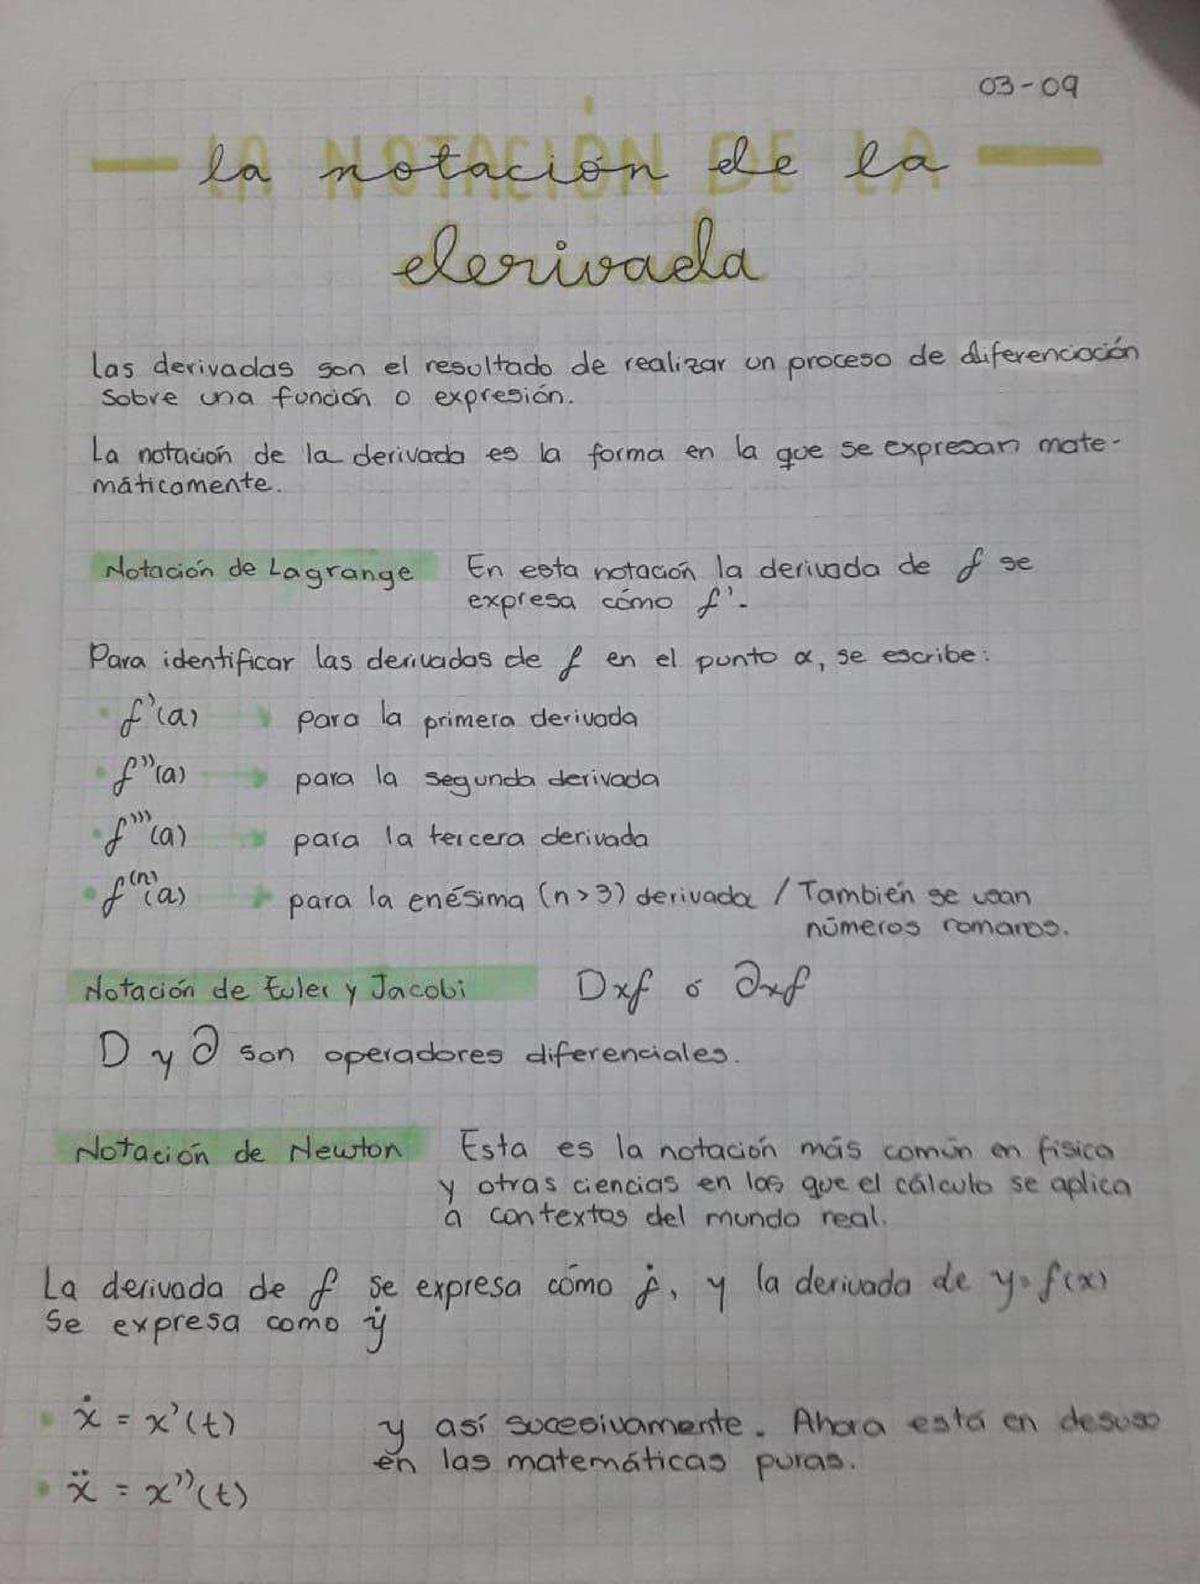 03-09
la notación de la
derivada
Las derivadas son el resultado de realizar un proceso de diferenciación
sobre una función o expresión.
La notación de la derivada es la forma en la que se expresan mate-
máticamente.
Notación de Lagrange En esta notación la derivada de f se
expresa cómo f'.
Para identificar las derivadas de f en el punto α, se escribe:
• f'(a) → para la primera derivada
• f''(a) → para la segunda derivada
• f'''(a) → para la tercera derivada
• f⁽ⁿ⁾(a) → para la enésima (n>3) derivada / También se usan
números romanos.
Notación de Euler y Jacobi Dxf ó ∂xf
D y ∂ son operadores diferenciales.
Notación de Newton Esta es la notación más común en física
y otras ciencias en las que el cálculo se aplica
a contextos del mundo real.
La derivada de f se expresa cómo ḟ, y la derivada de y=f(x)
se expresa como ẏ
• ẋ = x'(t) y así sucesivamente. Ahora está en desuso
en las matemáticas puras.
• ẍ = x''(t)